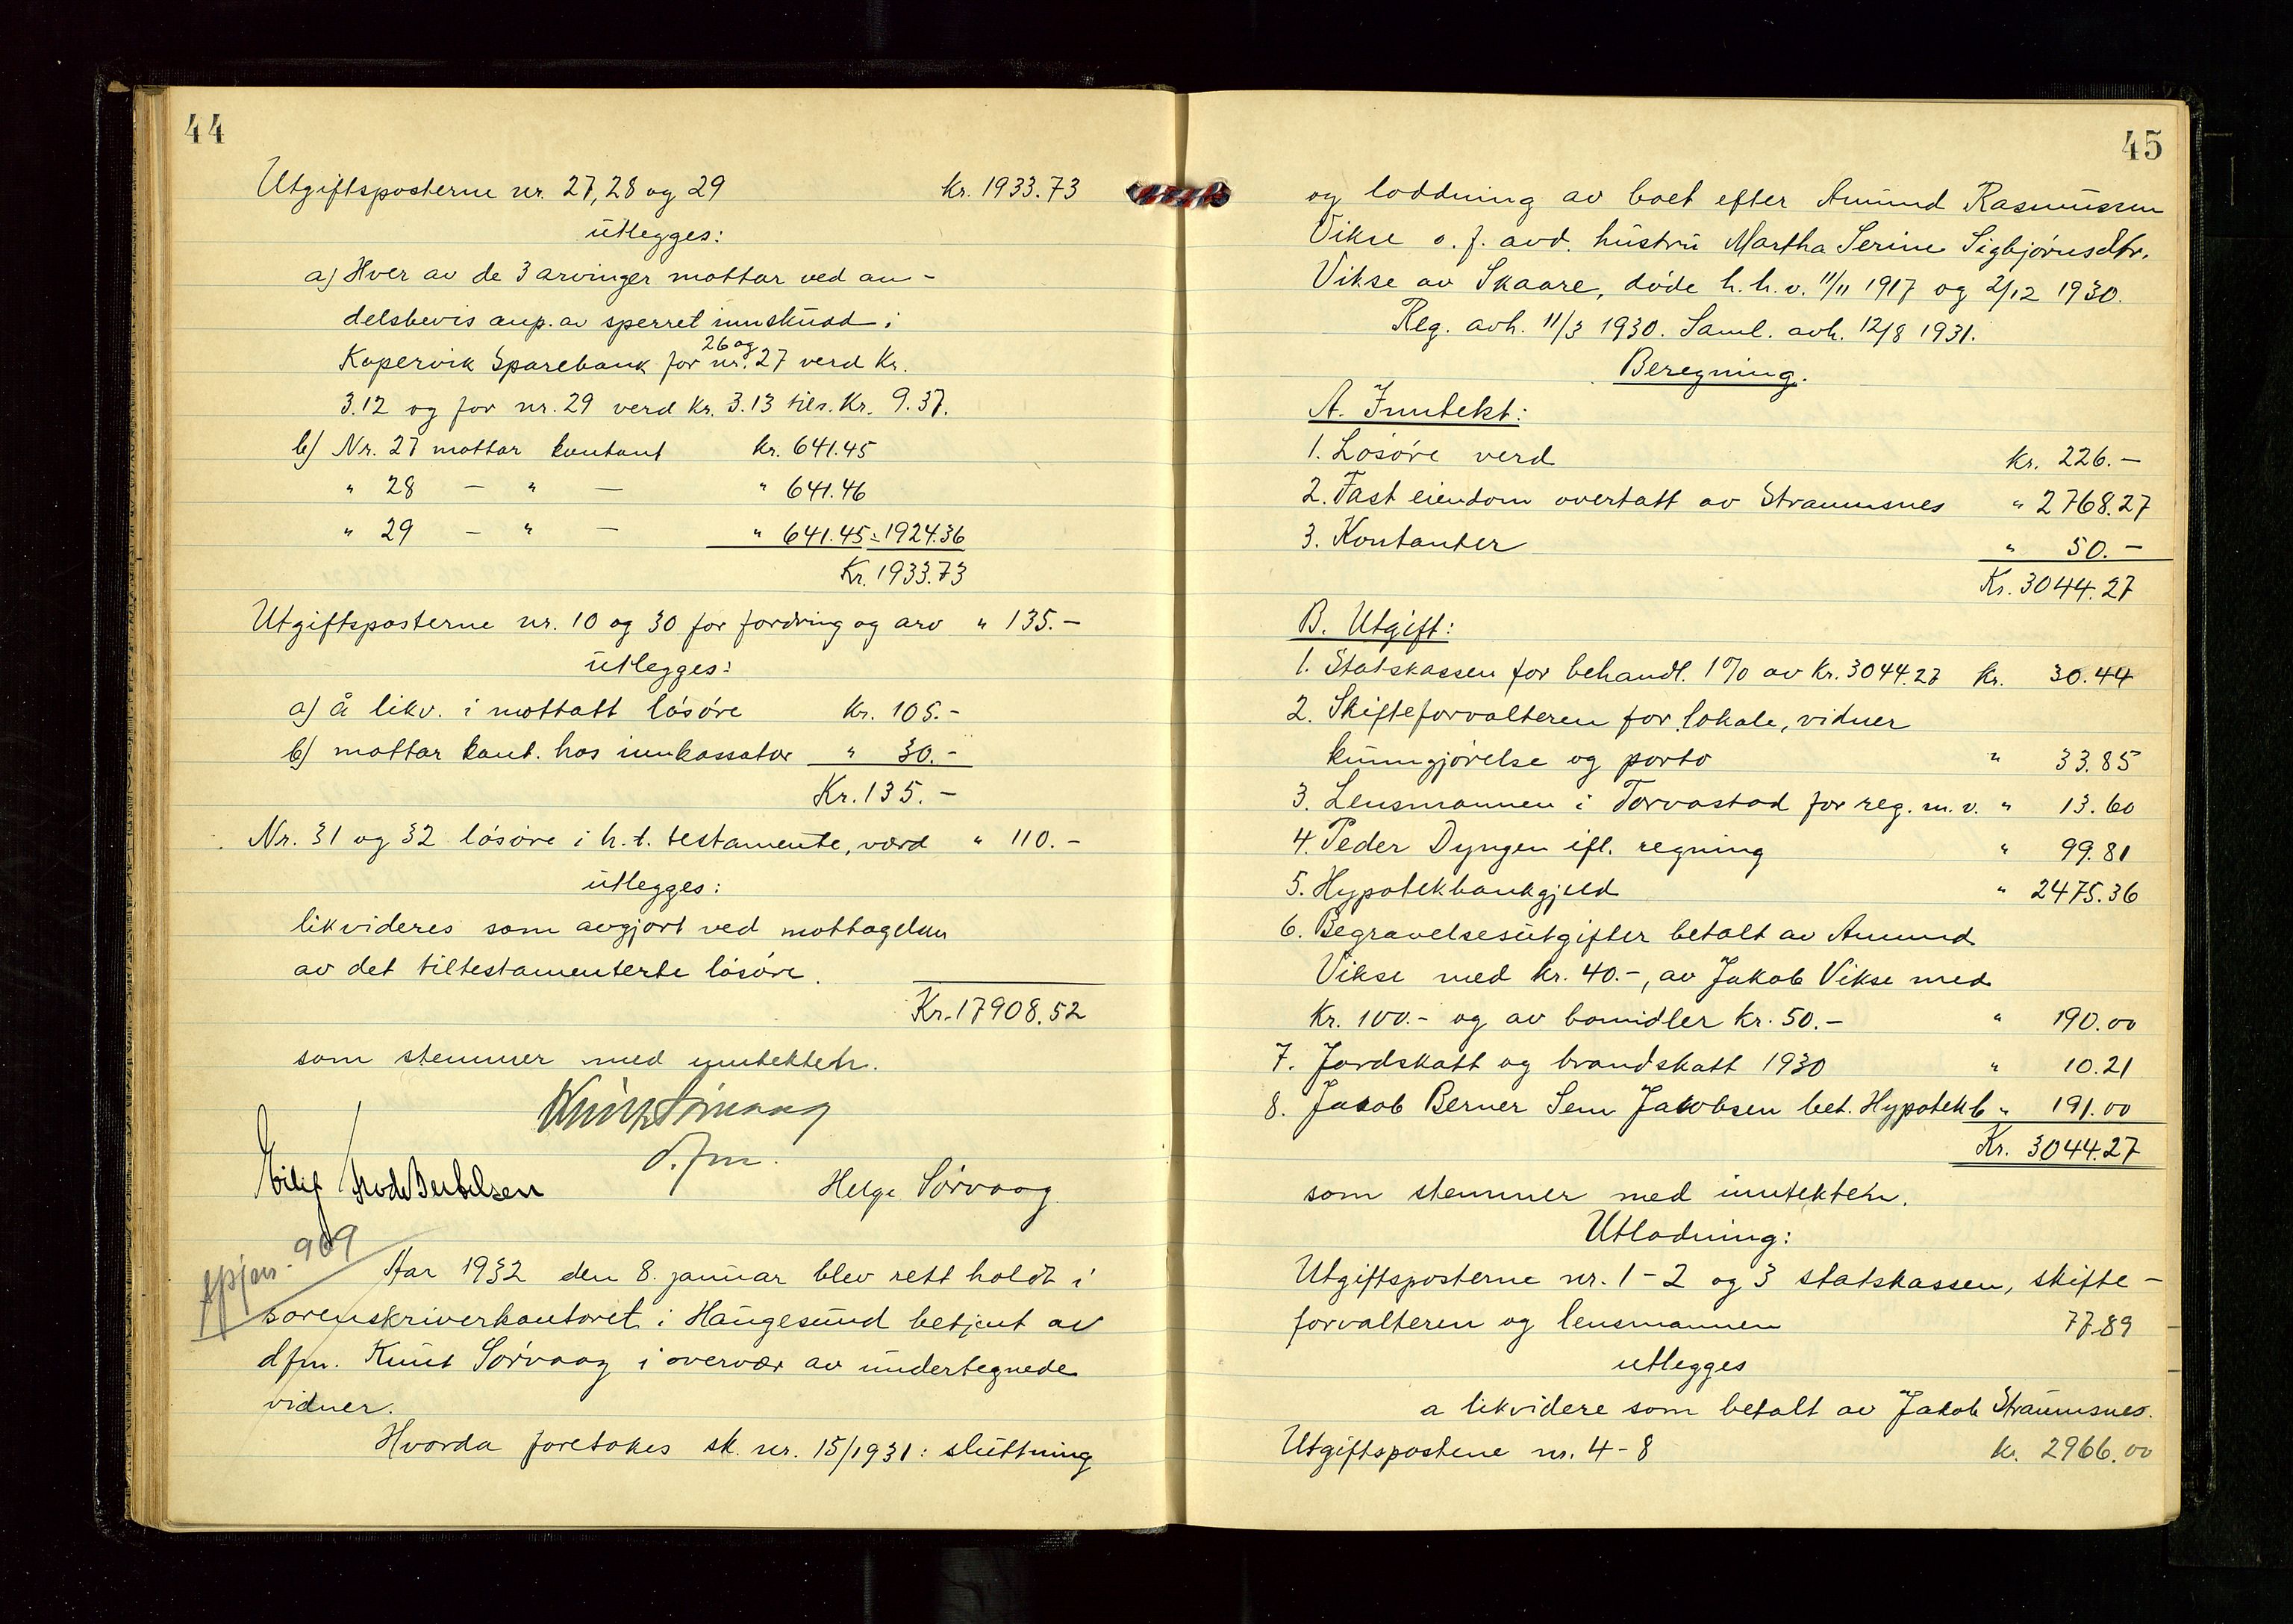 44
Utgiftsposterne nr. 27, 28 og 29 kr. 1933.73
utlegges:
a) Hver av de 3 arvinger mottar ved an-
delsbevis anp. av sperret innskudd i
Kopervik Sparebank for nr. 26 og 27 verd Kr.
3.12 og for nr. 29 verd kr. 3.13 tils. Kr. 9.37.
b) Nr. 27 mottar kontant kr. 641.45
" 28 — " — " 641.46
" 29 — " — " 641.45 = 1924.36
Kr. 1933.73
Utgiftsposterne nr. 10 og 30 for fordring og arv " 135.-
utlegges:
a) å likv. i mottatt lösöre kr. 105.-
b) mottar kont. hos innkassator " 30.-
Kr. 135.-
Nr. 31 og 32 lösöre i h.t. testamente, verd " 110.-
utlegges:
likvideres som avgjort ved mottagelsen
av det tiltestamenterte lösöre.
Kr. 17908.52
som stemmer med inntekten.
Knut Sörvaag
d.fm.
Helge Sörvaag
spjnr. 969
Aar 1932 den 8. januar blev rett holdt i
sorenskriverkontoret i Haugesund betjent av
dfm. Knut Sörvaag i overvær av undertegnede
vidner.
Hvorda foretokes sk. nr. 15/1931: sluttning
45
og loddning av boet efter Amund Rasmussen
Vikse o. f. avd. hustru Martha Serine Sigbjörnsdtr.
Vikse av Skaare, döde h.h.v. 11/11 1917 og 2/12 1930.
Reg. avh. 11/3 1930. Saml. avh. 12/8 1931.
Beregning.
A. Inntekt:
1. Lösöre verd kr. 226.-
2. Fast eiendom overtatt av Straumsnes " 2768.27
3. Kontanter " 50.-
Kr. 3044.27
B. Utgift:
1. Statskassen for behandl. 1% av Kr. 3044.27 kr. 30.44
2. Skifteforvalteren for lokale, vidner
kunngjörelse og porto " 33.85
3. Lensmannen i Torvastad for reg. m.v. " 13.60
4. Peder Dyngen ifl. regning " 99.81
5. Hypotekbankgjeld " 2475.36
6. Begravelsesutgifter betalt av Amund
Vikse med kr. 40.-, av Jakob Vikse med
Kr. 100.- og av bomidler kr. 50.- " 190.00
7. Jordskatt og brandskatt 1930 " 10.21
8. Jakob Berner Sem Jakobsen bet. Hypotekb " 191.00
Kr. 3044.27
som stemmer med inntekten.
Utlodning:
Utgiftsposterne nr. 1-2 og 3 statskassen, skifte-
forvalteren og lensmannen 77.89
utlegges
a likvidere som betalt av Jakob Straumsnes.
Utgiftspostene nr. 4-8 kr. 2966.00